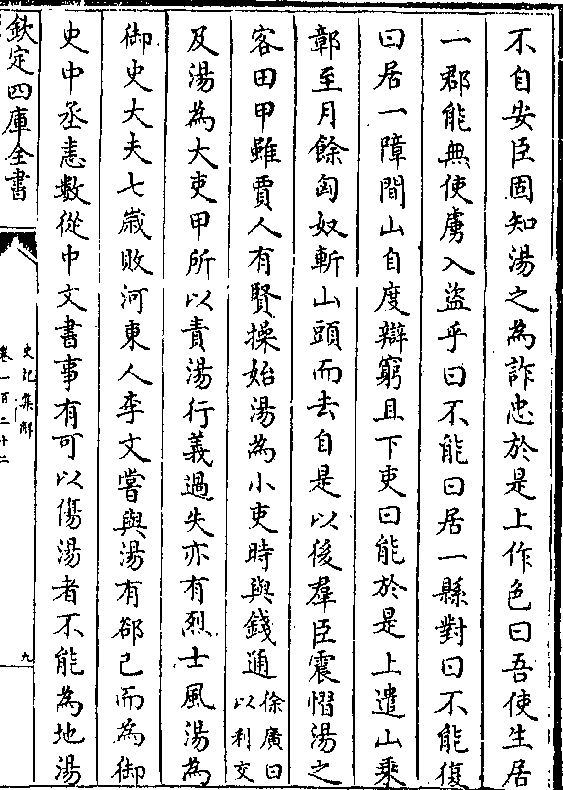 不自安臣固知湯之為詐忠於是上作色曰吾使生居
一郡能無使虜入盜乎曰不能曰居一縣對曰不能復
曰居一障間山自度辯窮且下吏曰能於是上遣山乗
鄣至月餘匈奴斬山頭而去自是以後羣臣震慴湯之
客田甲雖賈人有賢操始湯為小吏時與錢通徐廣曰以利交
及湯為大吏甲所以責湯行義過失亦有烈士風湯為
御史大夫七嵗敗河東人李文嘗與湯有郤已而為御
史中丞恚數從中文書事有可以傷湯者不能為地湯
欽定四庫全書
史記集解
卷一百二十二
九